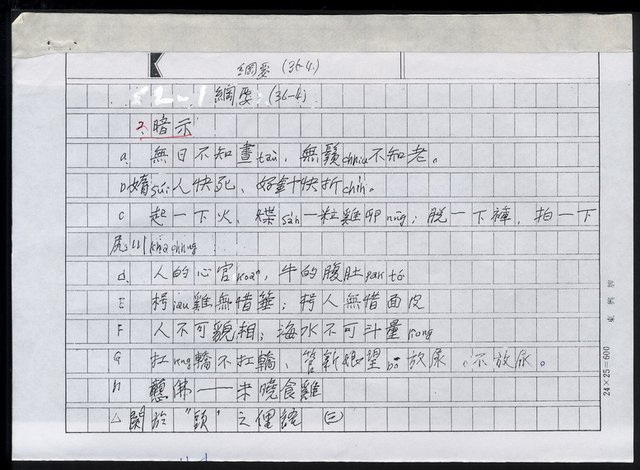 綱要 (36-4)
綱要 (36-4)
2. 暗示
a. 無日不知晝taù, 無鬚chhiu不知老。
b 媠súi人快死、好針快折chih。
c 起一下火, 煠sah一粒雞卵nñg; 脫一下褲, 拍一下
尻川kha chhng
d. 人的心官koaⁿ, 牛的腹肚pak tó
E 枵iau雞無惜箠; 枵人無惜面皮
F 人不可貌相; 海水不可斗量liong
G 扛kng轎不扛轎、管新娘放尿、不放尿。
H 戇佛——未曉食雞
△ 關於"頭"之俚諺 (三)
24×25=600